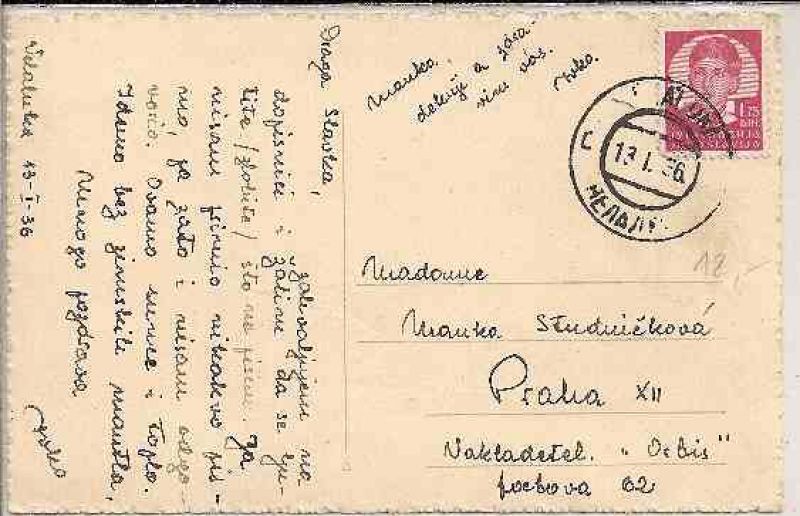 Draga Slavka,
zahvaljujem na
dopisnici i žalim da se lju-
tite / zlobite / što ne pišem. Ja
nisam primio nikakvo pis-
mo, ja zato i nisam odgo-
vorio. Ovamo sunce i toplo.
Idemo bez zimskih mantla,
Mnogo pozdrava
Ivko
13-I-36
Manka.
dekuji a zdra-
vim vás.
Ivko.
1.75
DIN.
13.I.36.
12,-
Madame
Manka Studničková
Praha XII
Nakladatel. „Orbis"
Fochova 62